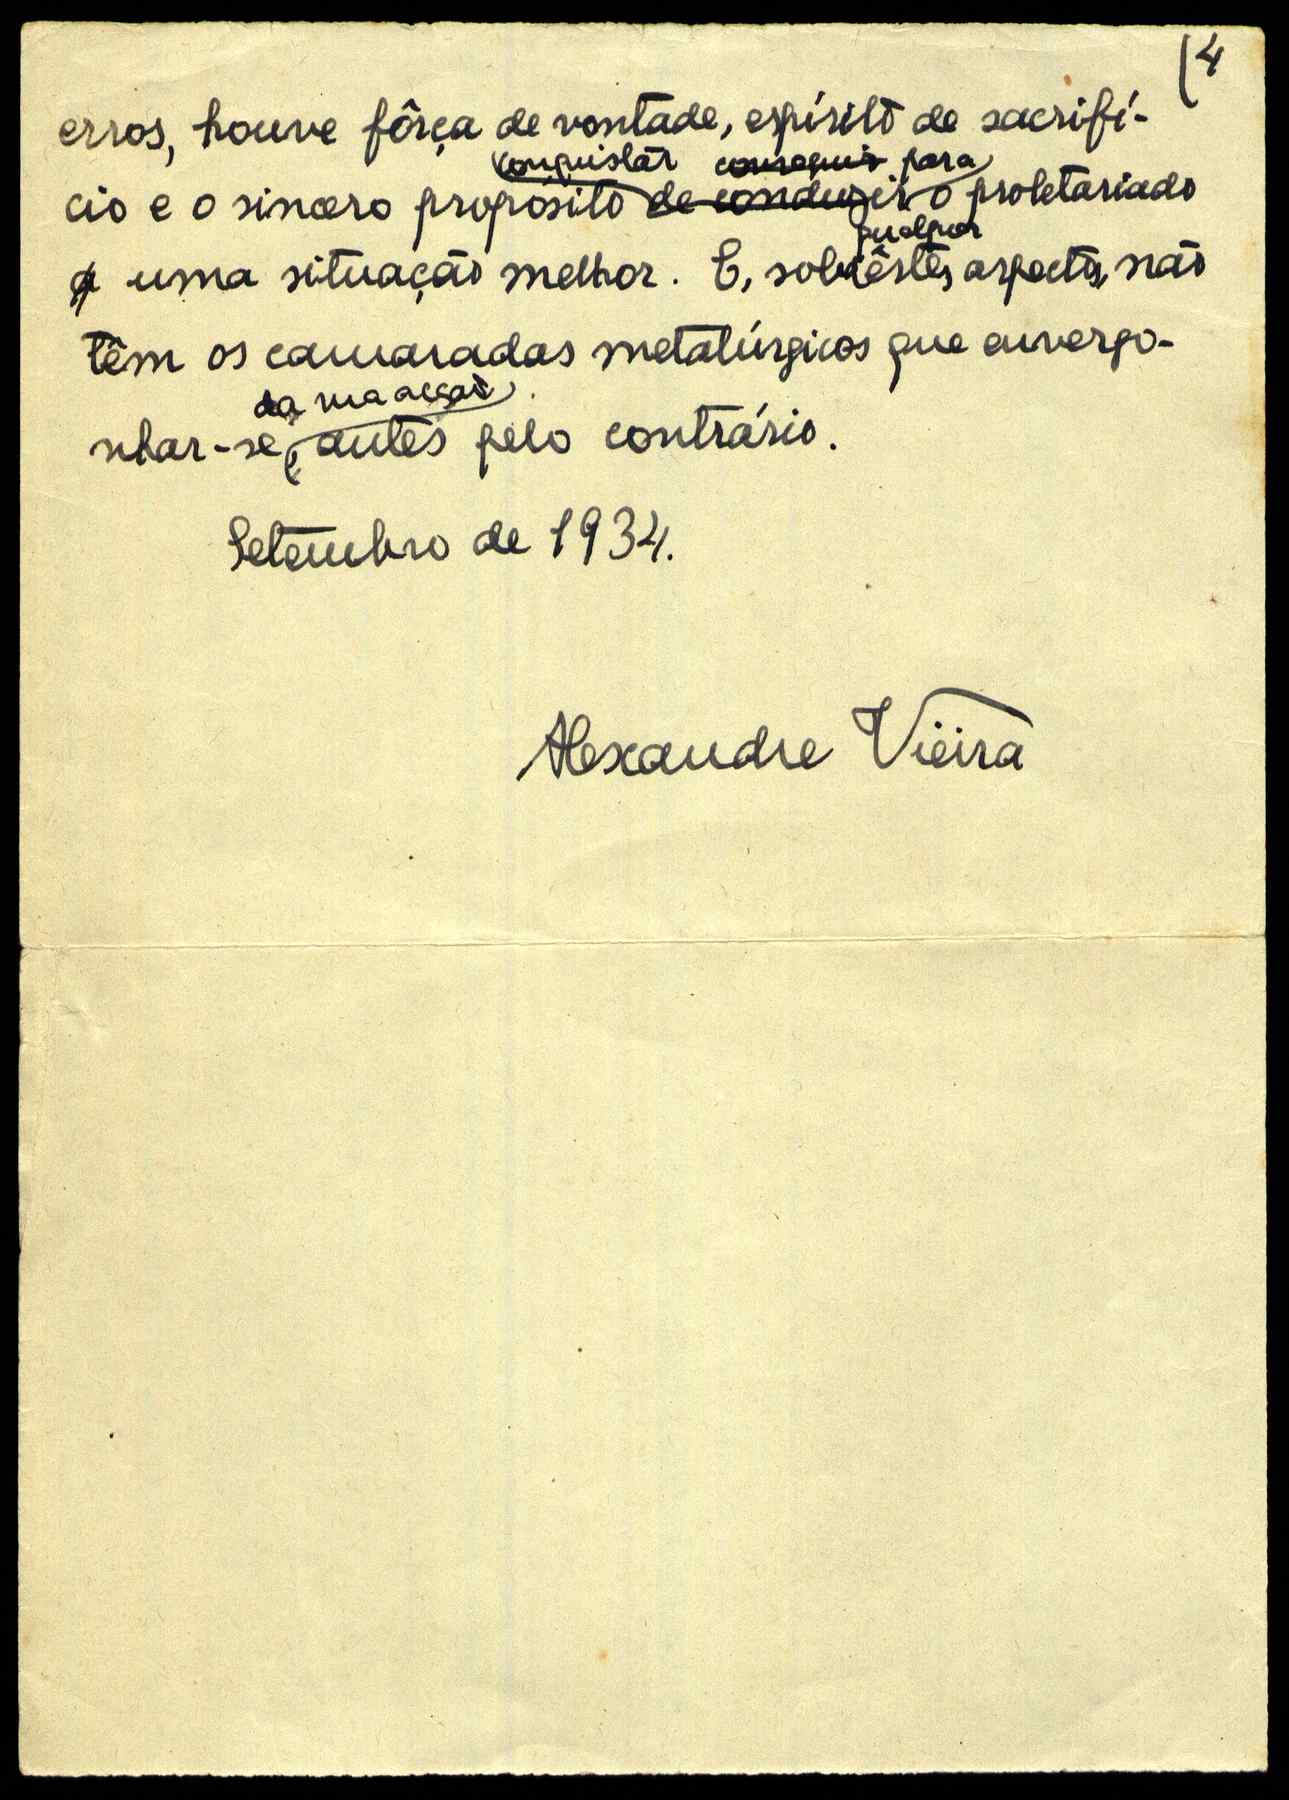 4
erros, houve fôrça de vontade, espírito de sacrifí-
conquistar conseguir para
cio e o sincero propósito de conduzir o proletariado
a uma situação melhor. E, sob êstes aspectos, não
qualquer
têm os camaradas metalúrgicos que envergo-
da sua acção
nhar-se, antes pelo contrário.
Setembro de 1934.
Alexandre Vieira